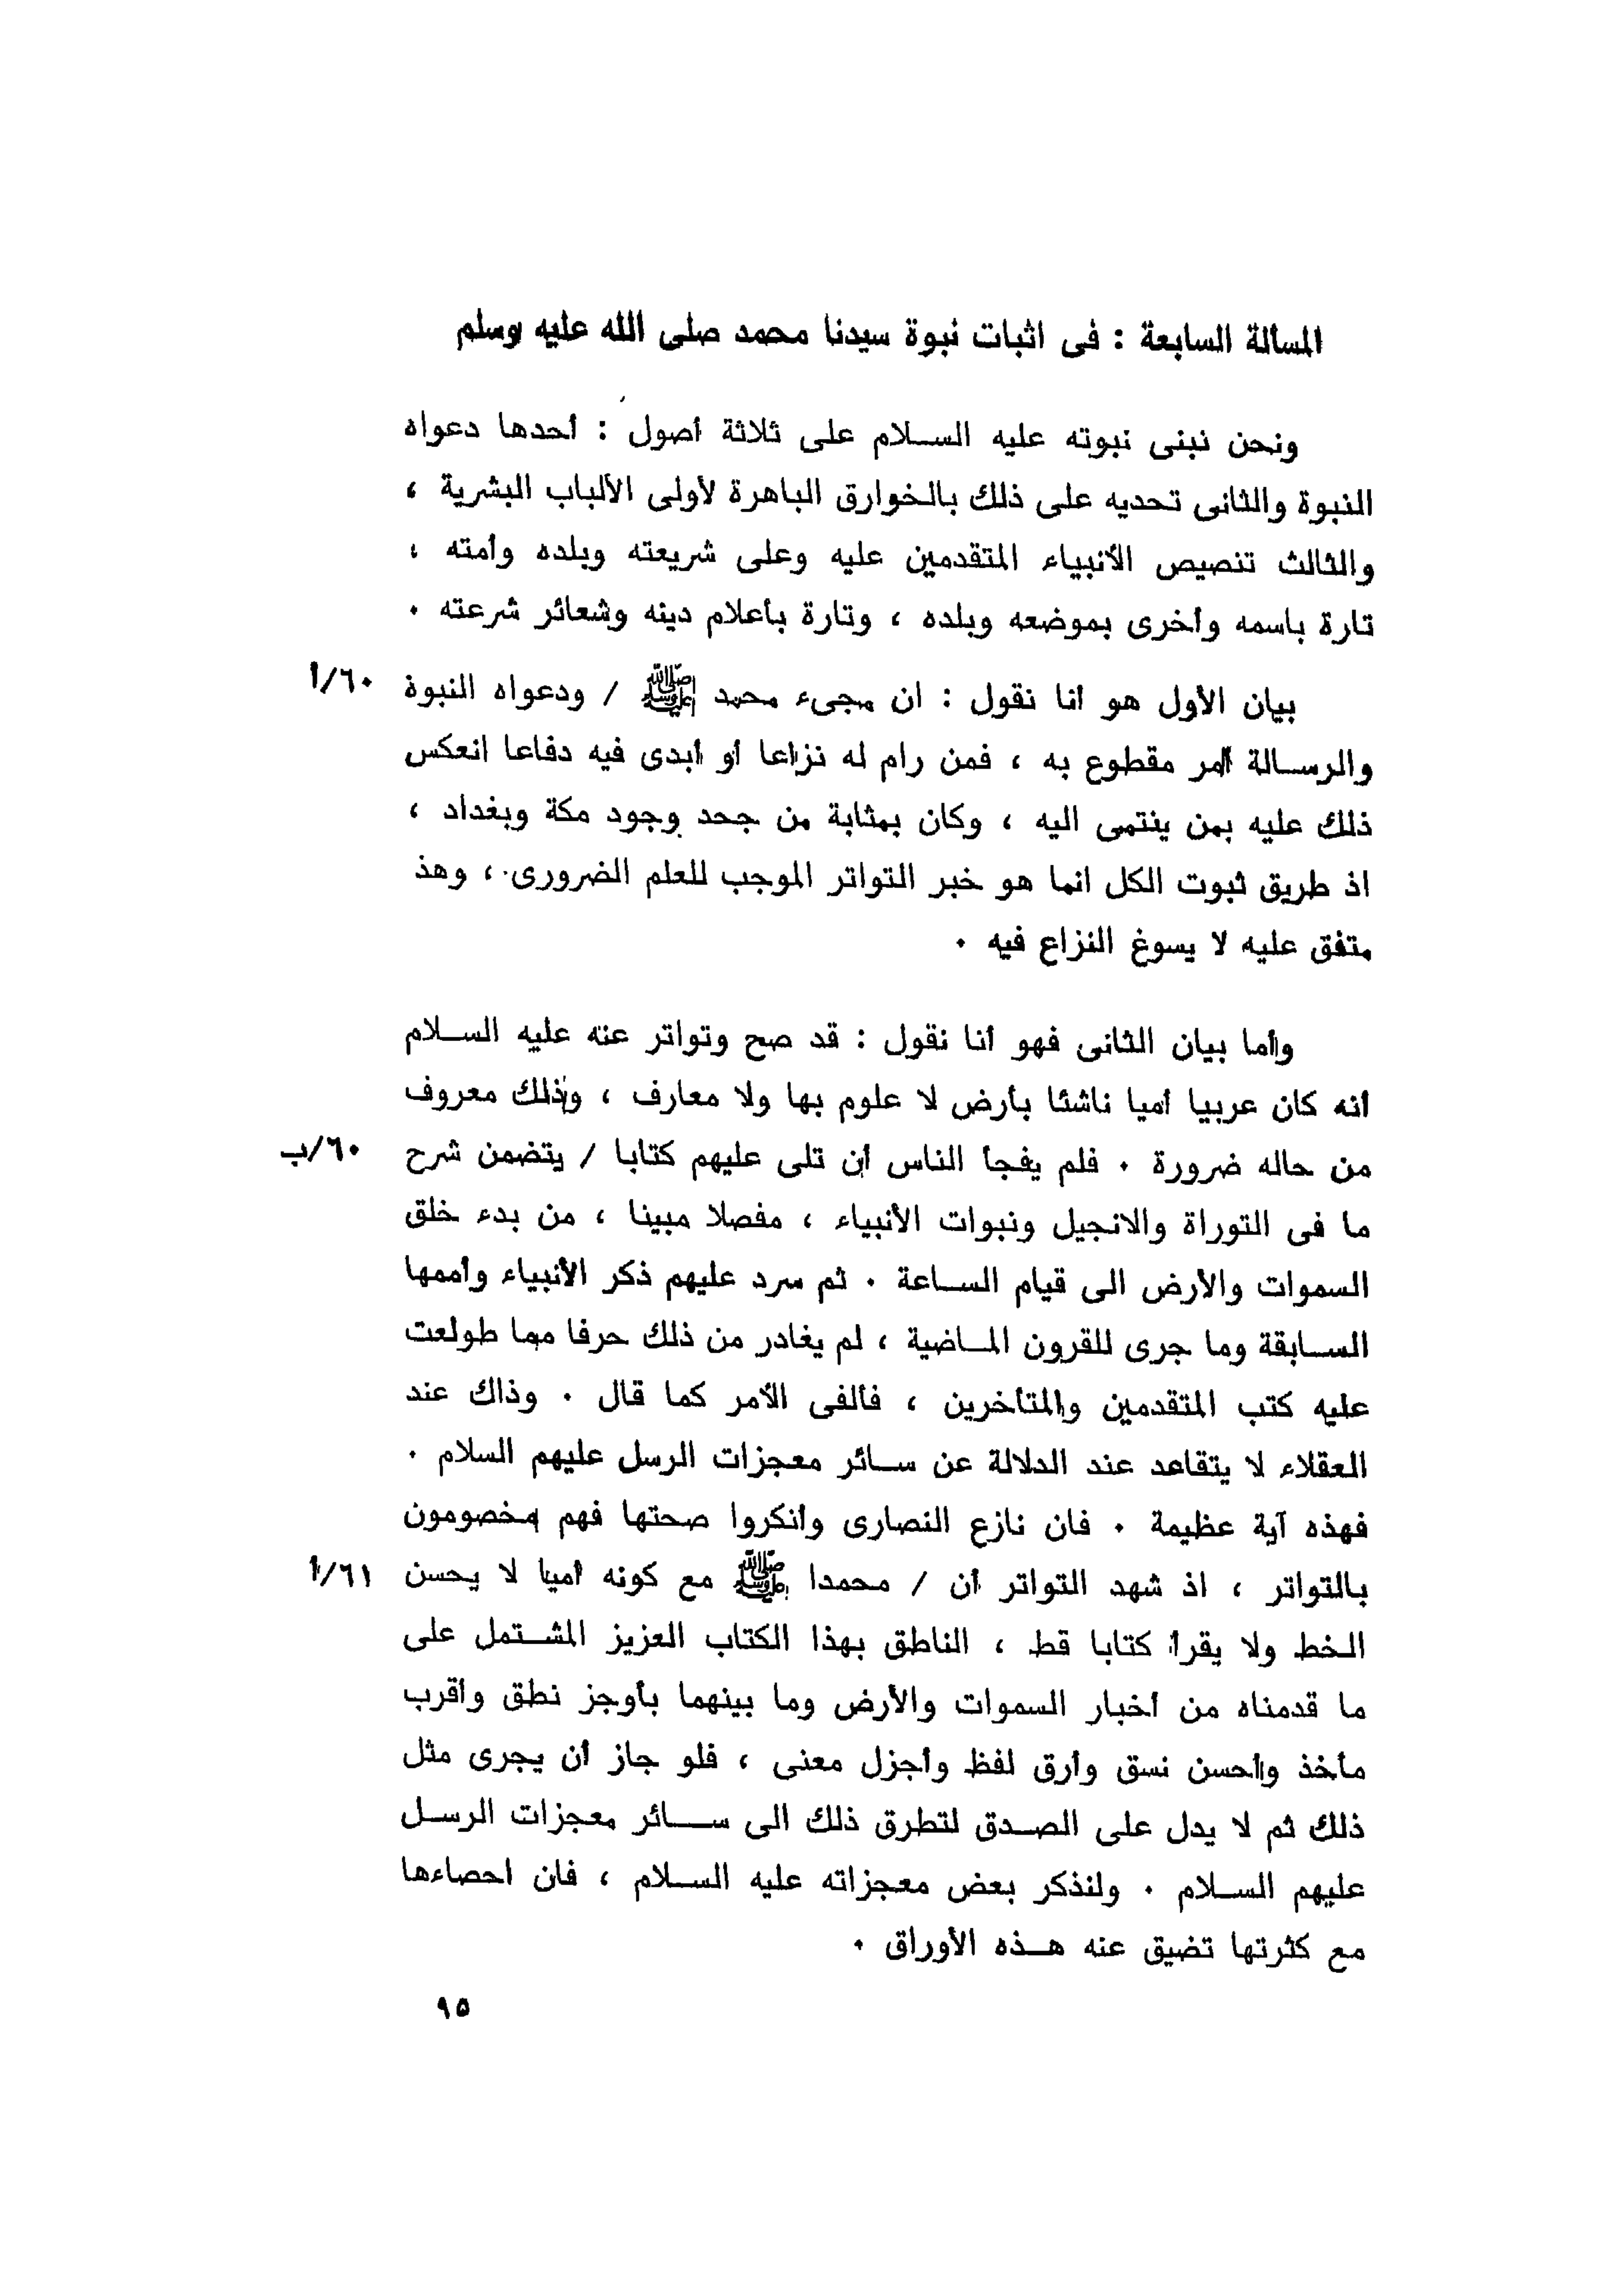 المسألة السابعة : فى اثبات نبوة سيدنا محمد صلى الله عليه وسلم
ونحن نبنى نبوته عليه الســلام على ثلاثة أصول : أحدها دعواه
النبوة والثانى تحديه على ذلك بالخوارق الباهرة لأولى الألباب البشرية ،
والثالث تنصيص الأنبياء المتقدمين عليه وعلى شريعته وبلده وأمته ،
تارة باسمه وأخرى بموضعه وبلده ، وتارة بأعلام دينه وشعائر شرعته ٠
بيان الأول هو أنا نقول : ان مجىء محمد ﷺ / ودعواه النبوة ٦٠/أ
والرســالة أمر مقطوع به ، فمن رام له نزاعا أو أبدى فيه دفاعا انعكس
ذلك عليه بمن ينتمى اليه ، وكان بمثابة من جحد وجود مكة وبغداد ،
اذ طريق ثبوت الكل انما هو خبر التواتر الموجب للعلم الضرورى ، وهذ
متفق عليه لا يسوغ النزاع فيه ٠
وأما بيان الثانى فهو أنا نقول : قد صح وتواتر عنه عليه الســلام
أنه كان عربيا أميا ناشئا بأرض لا علوم بها ولا معارف ، وذلك معروف
من حاله ضرورة ٠ فلم يفجأ الناس أن تلى عليهم كتابا / يتضمن شرح ٦٠/ب
ما فى التوراة والانجيل ونبوات الأنبياء ، مفصلا مبينا ، من بدء خلق
السموات والأرض الى قيام الســاعة ٠ ثم سرد عليهم ذكر الأنبياء وأممها
الســابقة وما جرى للقرون المــاضية ، لم يغادر من ذلك حرفا مما طولعت
عليه كتب المتقدمين والمتأخرين ، فألفى الأمر كما قال ٠ وذاك عند
العقلاء لا يتقاعد عند الدلالة عن ســائر معجزات الرسل عليهم السلام ٠
فهذه آية عظيمة ٠ فان نازع النصارى وأنكروا صحتها فهم مخصومون
بالتواتر ، اذ شهد التواتر أن / محمدا ﷺ مع كونه أميا لا يحسن ٦١/أ
الخط ولا يقرأ كتابا قط ، الناطق بهذا الكتاب العزيز المشــتمل على
ما قدمناه من أخبار السموات والأرض وما بينهما بأوجز نطق وأقرب
مأخذ وأحسن نسق وأرق لفظ وأجزل معنى ، فلو جاز أن يجرى مثل
ذلك ثم لا يدل على الصــدق لتطرق ذلك الى ســـائر معجزات الرســل
عليهم الســلام ٠ ولنذكر بعض معجزاته عليه الســلام ، فان احصاءها
مع كثرتها تضيق عنه هــذه الأوراق ٠
٩٥